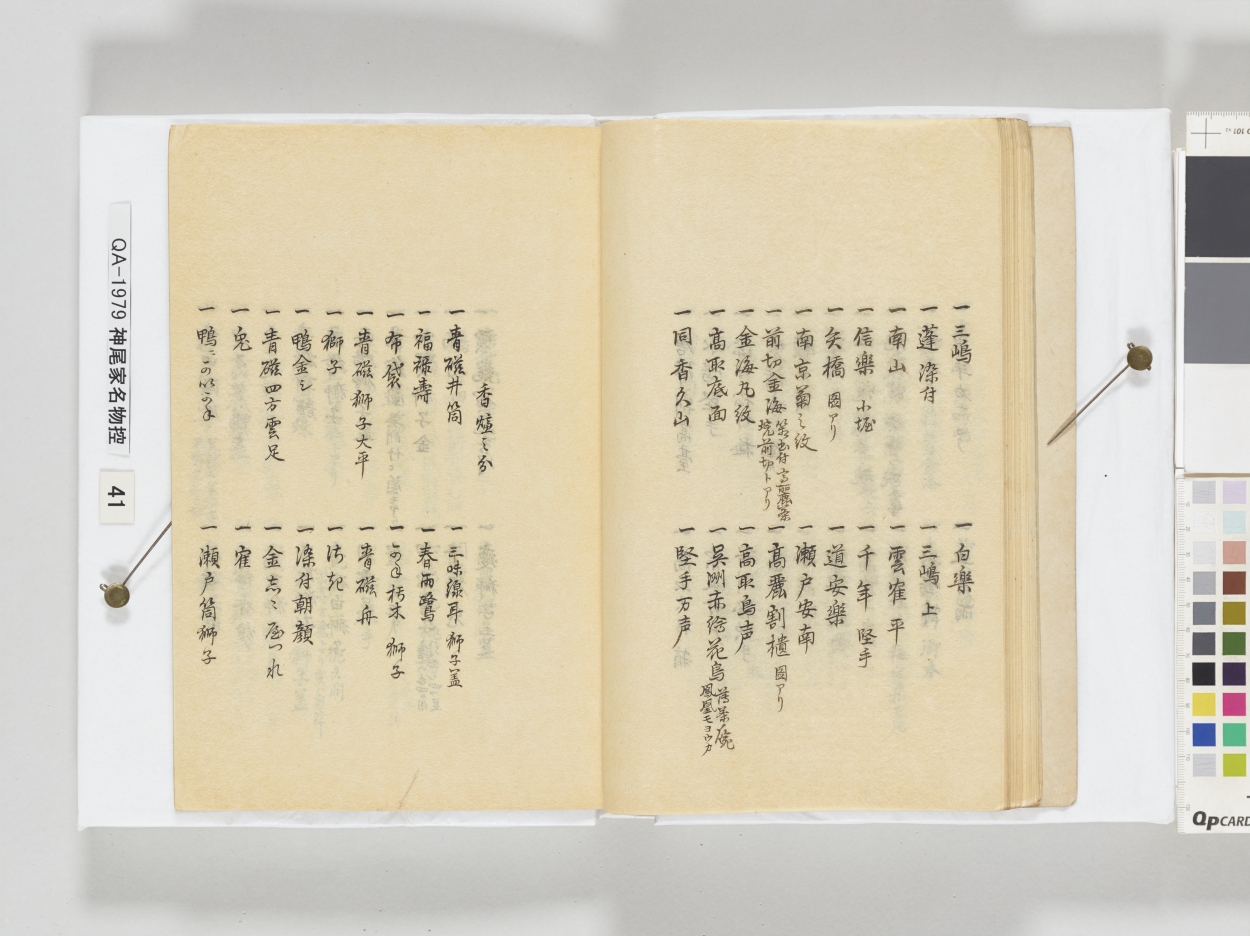 一 三嶋
一 蓬 染付
一 南山
一 信樂 小堀
一 矢橋 図アリ
一 南京菊之紋
一 前切金海
一 金海丸紋
一 高取底面
一 同香久山
一 白樂
一 三嶋 上
一 雲雀 平
一 千年 堅手
一 道安樂
一 瀬戸安南
一 高麗割樻 図アリ
一 高取鳥声
一 呉洲赤絵花鳥 薄茶碗 鳳凰モヨウカ
一 堅手万声
香爐之分
一 青磁井筒
一 福禄壽
一 布袋
一 青磁獅子大平
一 獅子
一 鴨金シ
一 青磁四方雲足
一 兎
一 鴨
一 三味線耳 獅子蓋
一 春雨鷺
一 朽木 獅子
一 青磁舟
一 染付朝顔
一 雀
一 瀬戸筒獅子
QA-1979 神尾家名物控
41
QPCARD
101